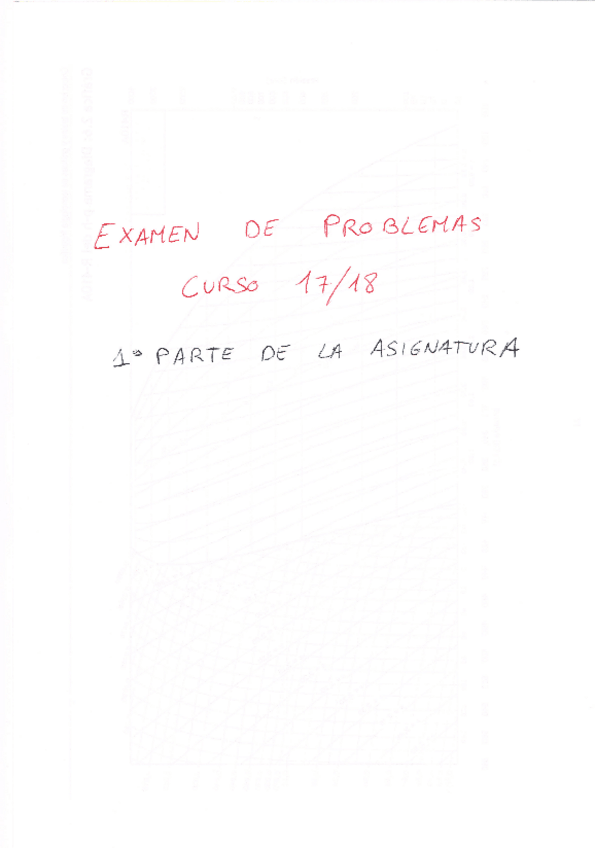 EXAMEN DE PROBLEMAS
CURSO 17/18
1ª PARTE DE LA ASIGNATURA